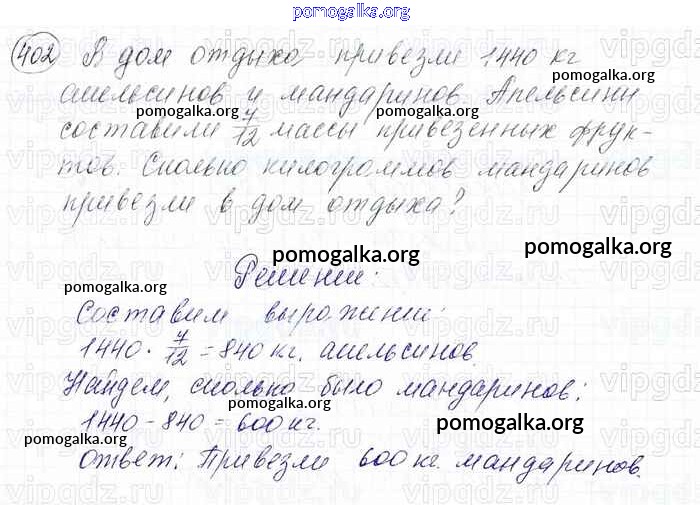 pomogalka.org
402 В дом отдыха привезли 1440 кг
pomogalka.org
апельсинов и мандаринов. Апельсины
составили 7/12 массы привезенных фрук-
pomogalka.org
тов. Сколько килограммов мандаринов
pomogalka.org
привезли в дом отдыха?
pomogalka.org
pomogalka.org
Решение:
pomogalka.org
Составим выражение:
pomogalka.org
1440 · 7/12 = 840 кг. апельсинов.
pomogalka.org
Найдем, сколько было мандаринов:
pomogalka.org
1440 - 840 = 600 кг.
pomogalka.org
pomogalka.org
ответ: Привезли 600 кг. мандаринов.